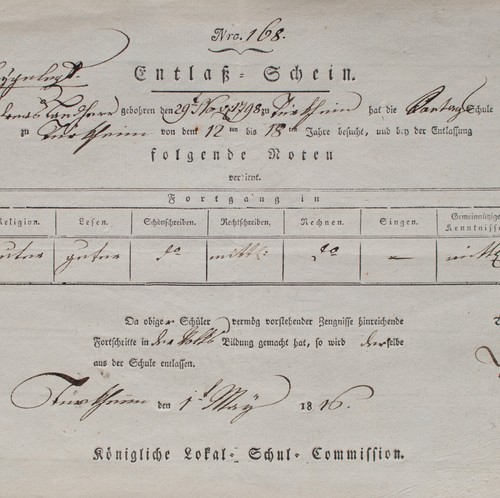 Nro. 168.
Entlaß-Schein.
gebohren den 29t Nov. 1798 zu Türkheim hat die Schule
zu Türkheim von dem 12ten bis 18ten Jahre besucht, und bey der Entlassung
folgende Noten
verdient.
Fortgang in
Religion. Lesen. Schönschreiben. Rechtschreiben. Rechnen. Singen. Gemeinnützige Kenntnisse
guter guter do mittl: do –
Da obiger Schüler vermög vorstehender Zeugnisse hinreichende
Fortschritte in der Bildung gemacht hat, so wird derselbe
aus der Schule entlassen.
Türkheim den 1t May 1816.
Königliche Lokal-Schul-Commission.